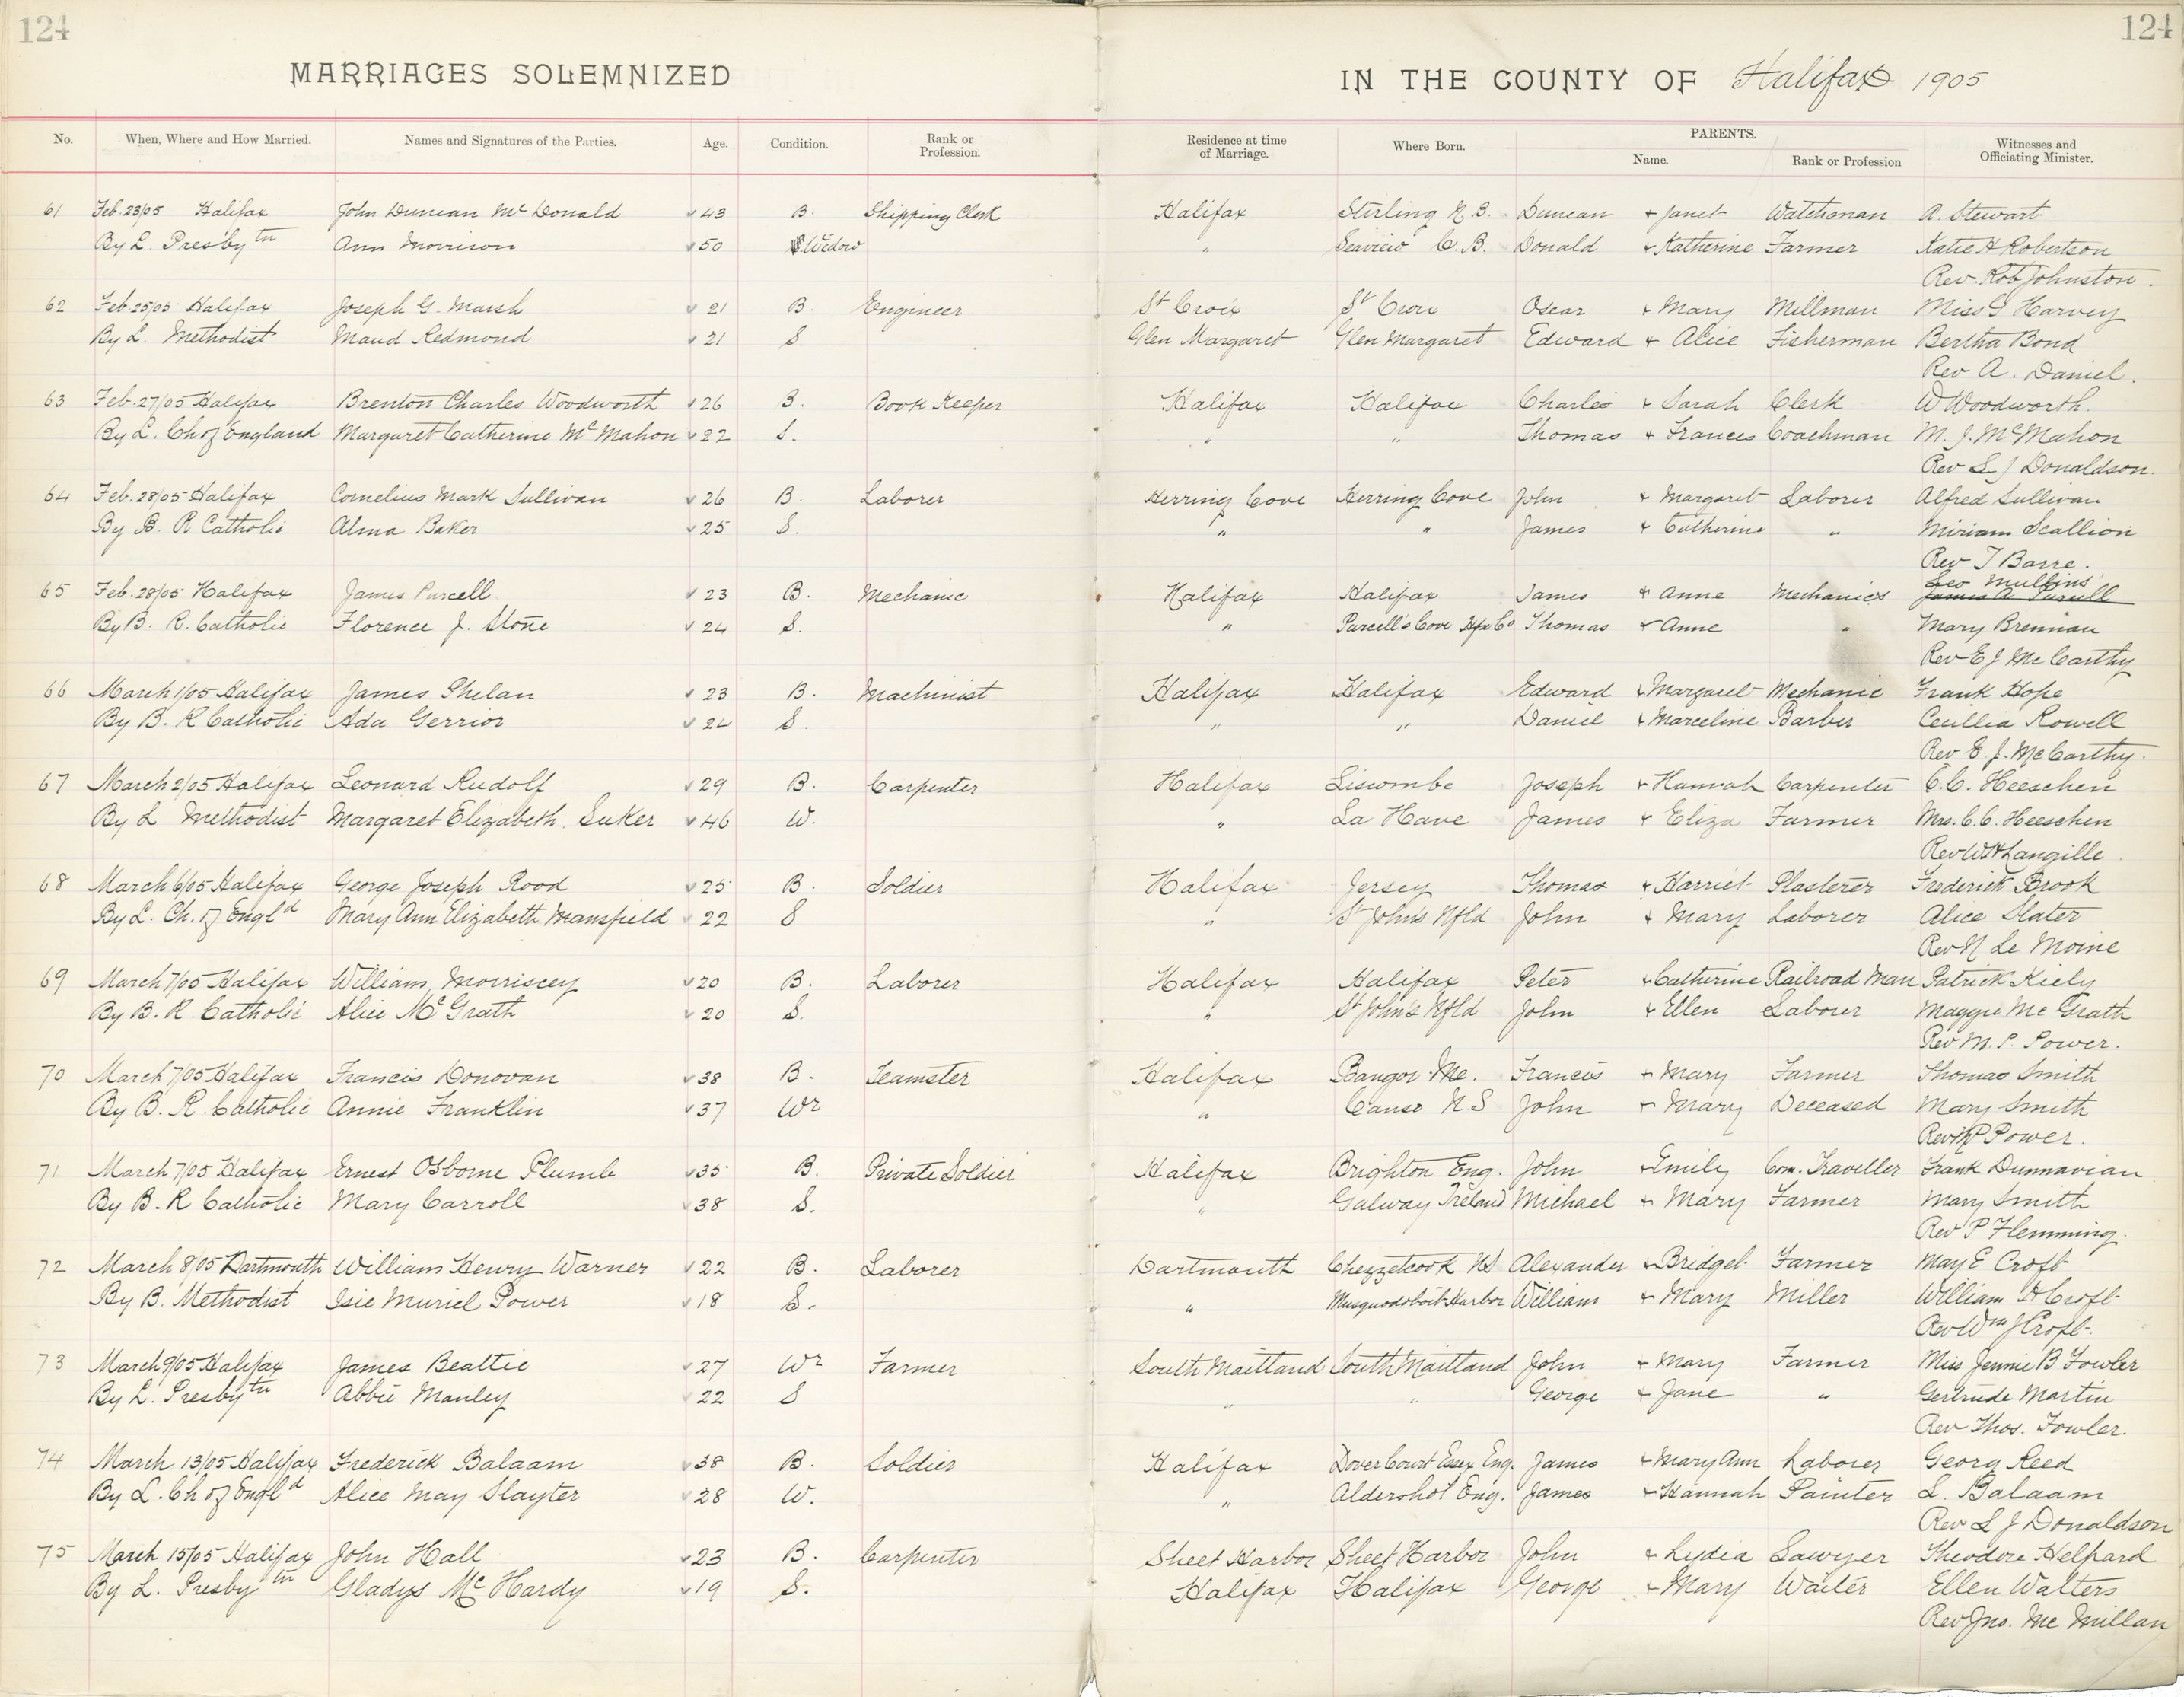 124
124
MARRIAGES SOLEMNIZED IN THE COUNTY OF Halifax 1905
No. When, Where and How Married. Names and Signatures of the Parties. Age. Condition. Rank or Profession. Residence at time of Marriage. Where Born. PARENTS. Name. Rank or Profession Witnesses and Officiating Minister.
61 Feb. 23/05 Halifax John Duncan Mc Donald 43 B. Shipping Clerk Halifax Stirling N.B. Duncan + Janet Watchman A. Stewart
By L. Presbytn Ann Morrison 50 Widow " Seaview C.B. Donald + Katherine Farmer Katie H Robertson
Rev. Rob Johnston.
62 Feb. 25/05 Halifax Joseph G. Marsh 21 B. Engineer St Croix St Croix Oscar + Mary Millman Miss G Harvey
By L. Methodist Maud Redmond 21 S Glen Margaret Glen Margaret Edward + Alice Fisherman Bertha Bond
Rev A. Daniel.
63 Feb. 27/05 Halifax Brenton Charles Woodworth 26 B. Book Keeper Halifax Halifax Charles + Sarah Clerk W Woodworth.
By L. Ch of England Margaret Catherine McMahon 22 S. " " Thomas + Frances Coachman M. J. McMahon
Rev L J Donaldson.
64 Feb. 28/05 Halifax Cornelius Mark Sullivan 26 B. Laborer Herring Cove Herring Cove John + Margaret Laborer Alfred Sullivan
By B. R Catholic Alma Baker 25 S. " " James + Catherine " Miriam Scallion
Rev T Barre.
65 Feb. 28/05 Halifax James Purcell 23 B. Mechanic Halifax Halifax James + Anne Mechanics Geo Mullins
James A Purcell
By B. R. Catholic Florence J. Stone 24 S. " Purcell's Cove Hfx Co Thomas + Anne " Mary Brennan
Rev E J Mc Carthy
66 March 1/05 Halifax James Phelan 23 B. Machinist Halifax Halifax Edward + Margaret Mechanic Frank Hope
By B. R Catholic Ada Gerrior 24 S. " " Daniel + Marceline Barber Cecillia Rowell
Rev E J. McCarthy.
67 March 2/05 Halifax Leonard Rudolf 29 B. Carpenter Halifax Liscombe Joseph + Hannah Carpenter C.C. Heeschen
By L Methodist Margaret Elizabeth Suker 46 W. " La Have James + Eliza Farmer Mrs. C.C. Heeschen
Rev W H Langille
68 March 6/05 Halifax George Joseph Rood 25 B. Soldier Halifax Jersey Thomas + Harriet Plasterer Frederick Brook
By L. Ch. of Engld Mary Ann Elizabeth Mansfield 22 S " St John's Nfld John + Mary Laborer Alice Slater
Rev N Le Moine
69 March 7/05 Halifax William Morriscey 20 B. Laborer Halifax Halifax Peter + Catherine Railroad Man Patrick Kiely
By B. R. Catholic Alice McGrath 20 S. " St John's Nfld John + Ellen Laborer Maggie Mc Grath
Rev M. P. Power.
70 March 7/05 Halifax Francis Donovan 38 B. Teamster Halifax Bangor Me. Francis + Mary Farmer Thomas Smith
By B. R. Catholic Annie Franklin 37 Wr " Canso N S John + Mary Deceased Mary Smith
Rev M P Power.
71 March 7/05 Halifax Ernest Osborne Plumb 35 B. Private Soldier Halifax Brighton Eng. John + Emily Com. Traveller Frank Dunnavian
By B. R Catholic Mary Carroll 38 S. " Galway Ireland Michael + Mary Farmer Mary Smith
Rev P Flemming.
72 March 8/05 Dartmouth William Henry Warner 22 B. Laborer Dartmouth Chezzetcook NS Alexander + Bridget Farmer May E Croft
By B. Methodist Isie Muriel Power 18 S. " Musquodoboit Harbor William + Mary Miller William H Croft
Rev Wm J Croft.
73 March 9/05 Halifax James Beattie 27 Wr Farmer South Maitland South Maitland John + Mary Farmer Miss Jennie B Fowler
By L. Presbytn Abbie Manley 22 S " " George + Jane " Gertrude Martin
Rev Thos. Fowler.
74 March 13/05 Halifax Frederick Balaam 38 B. Soldier Halifax Dover Court Essex Eng. James + Mary Ann Laborer Georg Reed
By L. Ch of Engld Alice May Slayter 28 W. " Aldershot Eng. James + Hannah Painter L. Balaam
Rev L J Donaldson
75 March 15/05 Halifax John Hall 23 B. Carpenter Sheet Harbor Sheet Harbor John + Lydia Sawyer Theodore Helpard
By L. Presbytn Gladys Mc Hardy 19 S. Halifax Halifax George + Mary Waiter Ellen Walters
Rev Jno. Mc Millan